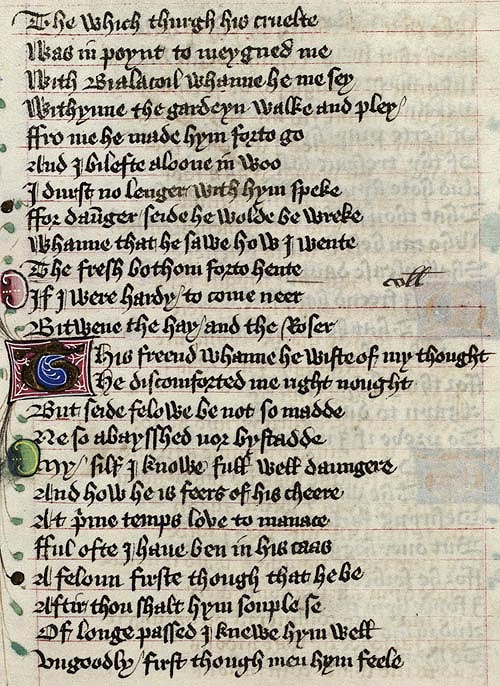 The which thurgh his cruelte
Was in poynt to meygned me
With Bialacoil whanne he me sey
Withynne the gardeyn walke and pley/
ffro me he made hym forto go
And I bilefte aloone in woo
I durst no lenger with hym speke
ffor daũger seide he wolde be wreke
Whanne that he sawe how I wente
The fresh bothom forto hente
coll
If I were hardy/ to come neer
Bitwene the hay/ and the Roser
This freend whanne he wiste of my thought
He discomforted me right nought
But seide felowe be not so madde
Ne so abaysshed nor bystadde
My/ silf I knowe full well daungere
And how he is feers of his cheere
At p̃me temps love to manace
fful ofte I haue ben in his caas
A feloun firste though that he be
Aftir thou shalt hym souple se
Of longe passed I knewe hym well
Vngoodly/ first though men hym feele